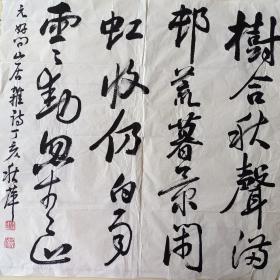 樹合秋聲滿
邨荒暮景閑
虹收仍白雨
雲動忽青山
元好问山居雜詩丁亥秋萍